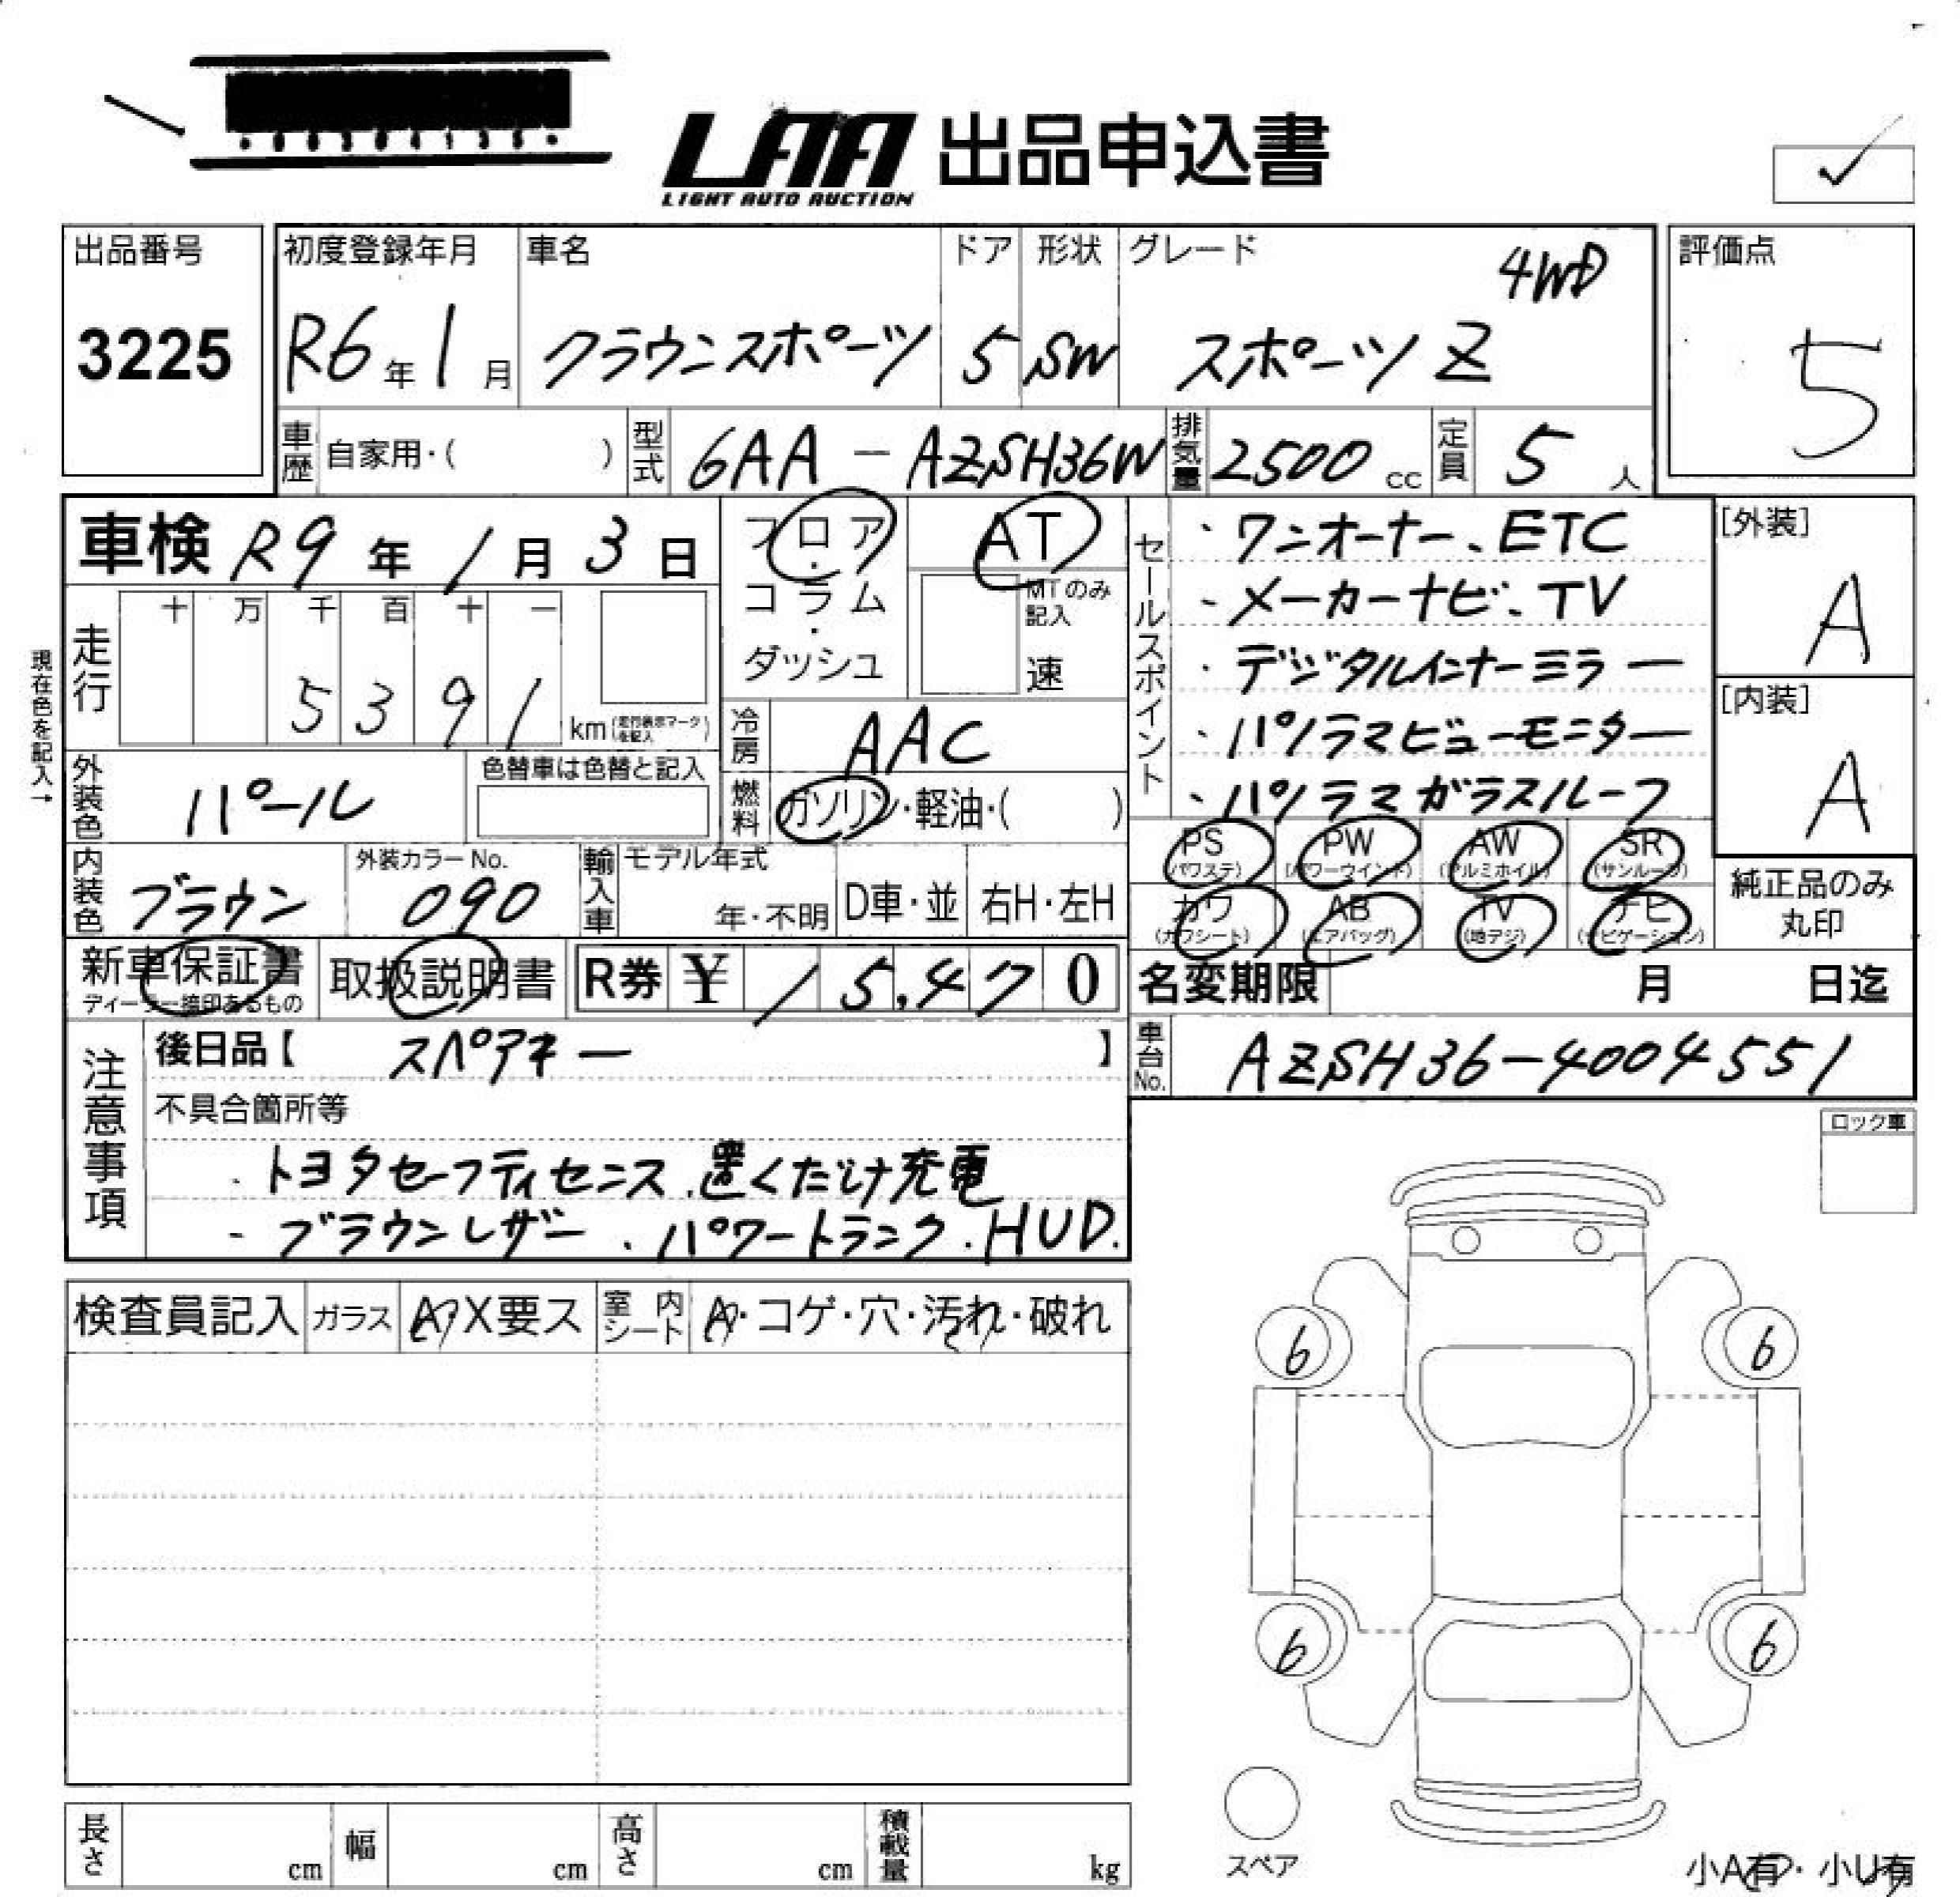 LAA 出品申込書
LIGHT AUTO AUCTION
出品番号
3225
初度登録年月
R6年1月
車名
クラウンスポーツ
ドア
5
形状
SW
グレード
4WD
スポーツ Z
評価点
5
車歴 自家用・( )
型式 6AA-AZSH36W
排気量 2500 cc
定員 5 人
車検 R9年1月3日
現在色を記入→
走行 十 万 千 百 十 一
5 3 9 1 km (走行表示マークを記入)
フロア・コラム・ダッシュ
AT
MTのみ記入
速
冷房 AAC
燃料 ガソリン・軽油・( )
外装色 パール
色替車は色替と記入
内装色 ブラウン
外装カラーNo.
090
輸入車 モデル年式
年・不明 D車・並 右H・左H
セールスポイント
・ワンオーナー、ETC
・メーカーナビ、TV
・デジタルインナーミラー
・パノラマビューモニター
・パノラマガラスルーフ
[外装]
A
[内装]
A
PS (パワステ) PW (パワーウインド) AW (アルミホイル) SR (サンルーフ)
カワ (カワシート) AB (エアバッグ) TV (地デジ) ナビ (ナビゲーション)
純正品のみ
丸印
新車保証書
ディーラー捺印あるもの
取扱説明書
R券 ¥ 15,470
名変期限 月 日迄
車台No. AZSH36-4004551
注意事項
後日品【 スペアキー 】
不具合箇所等
・トヨタセーフティセンス、置くだけ充電
・ブラウンレザー、パワートランク、HUD.
ロック車
検査員記入 ガラス A・X要ス 室内シート A・コゲ・穴・汚れ・破れ
6 6
6 6
スペア
小A有・小U有
長さ cm 幅 cm 高さ cm 積載量 kg